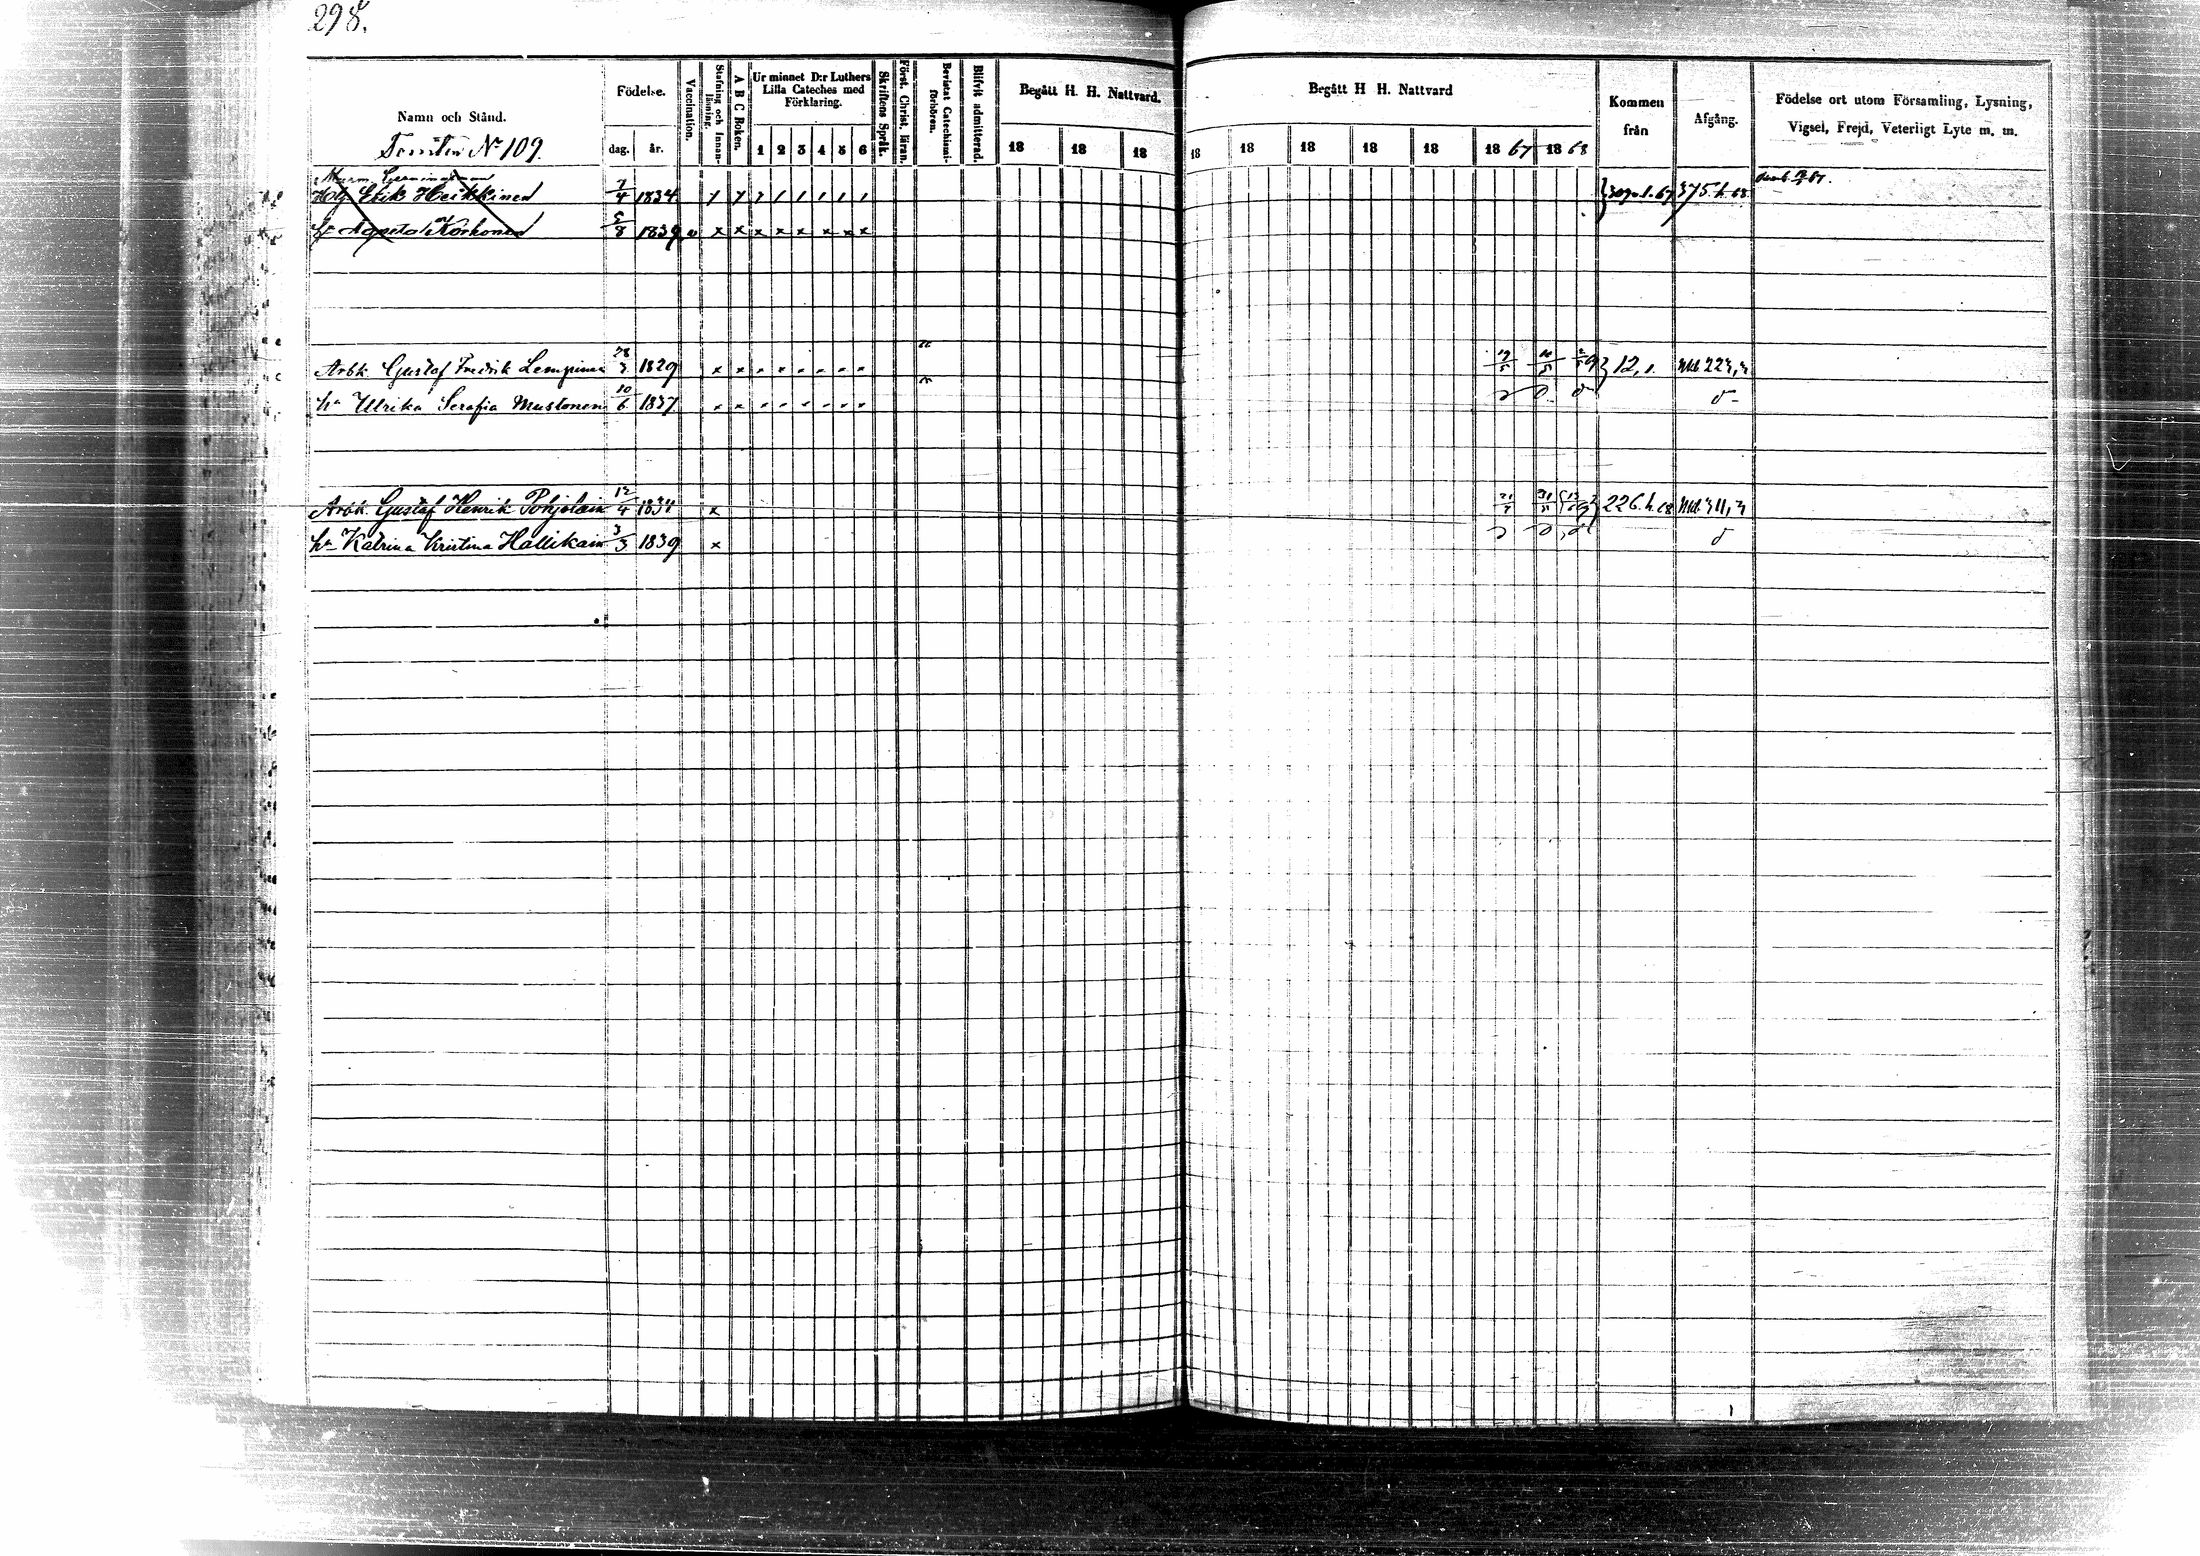 298.
Namn och Stånd.
Tomten No 109.
Födelse.
dag. år.
Vaccination.
Stafning och Innanläsning.
A B C Boken.
Ur minnet D:r Luthers Lilla Cateches med Förklaring.
1 2 3 4 5 6
Skriftens Språk.
Först. Christ. läran.
Bevistat Catechismiförhören.
Blifvit admitterad.
Begått H. H. Nattvard.
18 18 18
Begått H H. Nattvard
18 18 18 18 18 18 67 18 68
Kommen från
Afgång.
Födelse ort utom Församling, Lysning, Vigsel, Frejd, Veterligt Lyte m. m.
Erik Heikkinen 7/4 1834
hu Agneta Korhonen 5/8 1839 v x x x x x x x x
Arbk. Gustaf Fredrik 28/3 1829 x x 12, 1.
hu Ulrika Serafia Mustonen 10/6 1837
Arbk. Gustaf Henrik Pohjolain 12/4 1834 x 226. h. 68
hu Katrina Kristina Hallikain 3/3 1839 x